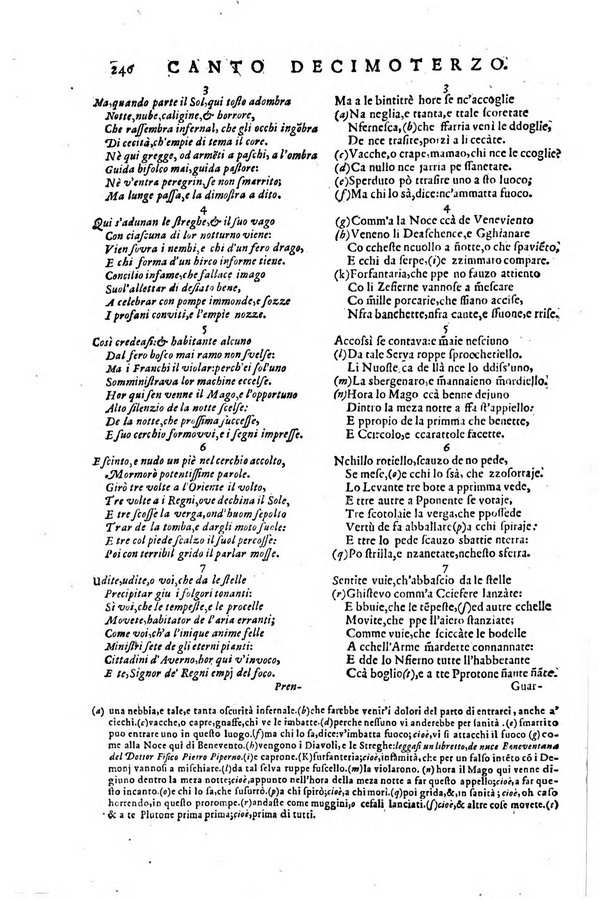 246 CANTO DECIMOTERZO.
3
Ma, quando parte il Sol, qui tosto adombra
Notte, nube, caligine, & horrore,
Che rassembra infernal, che gli occhi ingõbra
Di cecità, ch'empie di tema il core.
Nè qui gregge, od armēti a paschi, a l'ombra
Guida bifolco mai, guida pastore:
Nè v'entra peregrin, se non smarrito;
Ma lunge passa, e la dimostra a dito.
4
Qui s'adunan le streghe, & il suo vago
Con ciascuna di lor notturno viene:
Vien sovra i nembi, e chi d'un fero drago,
E chi forma d'un hirco informe tiene.
Concilio infame, che fallace imago
Suol'allettar di desiato bene,
A celebrar con pompe immonde, e sozze
I profani conviti, e l'empie nozze.
5
Così credeasi: & habitante alcuno
Dal fero bosco mai ramo non svelse:
Ma i Franchi il violar: perch'ei sol'uno
Somministrava lor machine eccelse.
Hor qui sen venne il Mago, e l'opportuno
Alto silenzio de la notte scelse:
De la notte, che prossima successe,
E suo cerchio formovvi, e i segni impresse.
6
E scinto, e nudo un piè nel cerchio accolto,
Mormorò potentissime parole.
Girò tre volte a l'Oriente il volto,
Tre volte a i Regni, ove dechina il Sole,
E tre scosse la verga, ond'huom sepolto
Trar de la tomba, e dargli moto suole:
E tre col piede scalzo il suol percosse:
Poi con terribil grido il parlar mosse.
7
Udite, udite, o voi, che da le stelle
Precipitar giu i folgori tonanti:
Sì voi, che le tempeste, e le procelle
Movete, habitator de l'aria erranti;
Come voi, ch'a l'inique anime felle
Ministri sete de gli eterni pianti:
Cittadini d'Averno, hor qui v'invoco,
E te, Signor de' Regni empj del foco.
Pren-
3
Ma a le bintitrè hore se nc'accoglie
(a) Na neglia, e ttanta, e ttale scoretate
Nfernesca, (b) che ffarria venì le ddoglie,
De nce trasire, porzì a li cecàte.
(c) Vacche, o crape, mamao, chi nce le ccoglie?
(d) Ca nullo nce jarria pe ssanetate.
(e) Sperduto pò ttrasire uno a sto luoco;
(f) Ma chi lo sà, dice: nc'ammatta fuoco.
4
(g) Comm'a la Noce ccà de Veneviento
(h) Veneno li Deaschence, e Gghianare
Co ccheste ncuollo a ñotte, o che spavièto,
E cchi da nserpe, (i) e zzimmaro compare.
(k) Forfantaria, che ppe no fauzo attiento
Co li Zefierne vannose a mescare
Co mille porcarie, che ssano accise,
Nfra banchette, nfra cante, e ssuone, e rrise.
5
Accossì se contava: e maie nesciuno
(l) Da tale Serva roppe sproochetiello.
Li Nuoste, ca de llà nce lo ddiss'uno,
(m) La sbergenaro, e mannaieno mardiello.
(n) Hora lo Mago ccà benne dejuno
Dintro la meza notte a ffa st'appiello:
E ppropio de la pprimma che benette,
E Ccircolo, e ccarattole facette.
6
Nchillo rotiello, scauzo de no pede,
Se mese, (o) e cchi lo ssà che zzofortaje.
Lo Levante tre bote a pprimma vede,
E ttre autre a Pponente se votaje,
Tre scotolaie la verga, che ppossede
Vertù de fa abballare (p) a cchi spiraje:
E ttre lo pede scauzo sbattie nterra:
(q) Po strilla, e nzanetate, nchesto sferra.
7
Sentite vuie, ch'abbascio da le stelle
(r) Ghistevo comm'a Cciefere lanzàte:
E bbuie, che le tēpeste, (s) ed autre cchelle
Movite, che ppe ll'aiero stanziate;
Comme vuie, che sciccàte le bodelle
A cchell'Arme mardette connannate:
E dde lo Nfierno tutte ll'habbetante
Ccà boglio (t), e a tte Pprotone ñante ñāte.
Guar-
(a) una nebbia, e tale, e tanta oscurità infernale. (b) che farebbe venir'i dolori del parto di entrarci, anche a'
ciechi. (c) vacche, o capre, gnaffe, chi ve le imbatte. (d) perche nessuno vi anderebbe per sanità. (e) smarrito
può entrare uno in questo luogo. (f) ma chi lo sa, dice: v'imbatta fuoco; cioè, vi si attacchi il fuoco (g) co-
me alla Noce quì di Benevento. (h) vengono i Diavoli, e le Streghe: leggasi un libretto, de nuce Beneventana
del Dottor Fisico Pietro Piperno. (i) caprone. (K) furfanteria; cioè, infamità, che per un falso intēto cō i De-
monj vannosi a mischiare. (l) da tal selva ruppe fuscello. (m) la violarono. (n) hora il Mago quì venne di-
giuno dentro la meza notte; cioè, appunto nell'hora della meza notte, a far questo appello; cioè, a far que-
sto incanto. (o) e chi lo sa, che susurrò. (p) a chi spirò; cioè, a chi morì. (q) poi grida, &, in sanità; cioè, oh caso
horrendo, in questo prorompe. (r) andaste come muggini, o cefali lanciati. (s) cioè, & altre cose movete. (t)
& a te Plutone prima prima; cioè, prima di tutti.